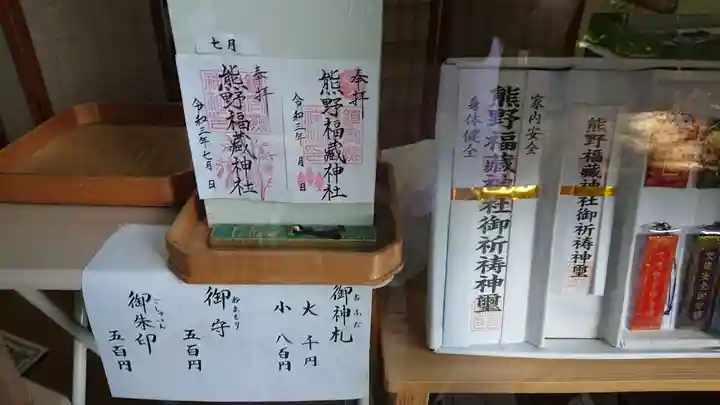 七月
奉拝
熊野福藏神社
令和三年 月 日
奉拝
熊野福藏神社
令和三年七月 日
御神札
おふだ
大 千円
小 八百円
御守
おまもり
五百円
御朱印
ごしゅいん
五百円
家内安全
身体健全
熊野福藏神社御祈祷神璽
熊野福藏神社御祈祷神璽
交通安全御守